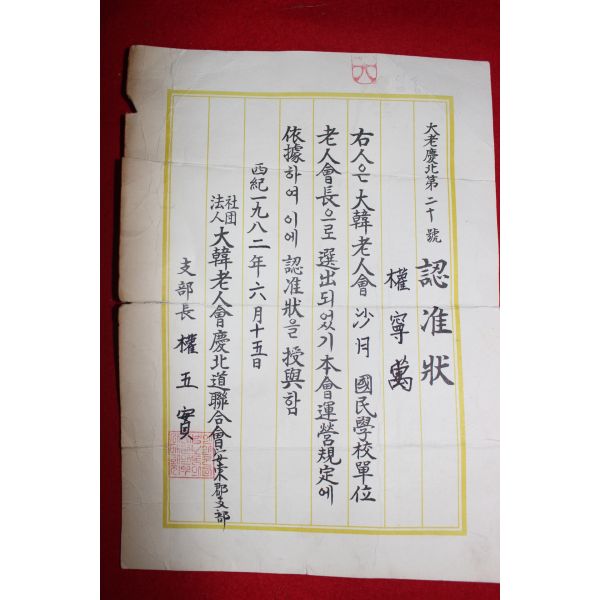 大老慶北第二十號
認准狀
權寧萬
右人은 大韓老人會 沙月 國民學校單位
老人會長으로 選出되었기 本會運營規定에
依據하여 이에 認准狀을 授與함
西紀一九八二年 六月十五日
社団法人 大韓老人會慶北道聯合會安東郡支部
支部長 權五實